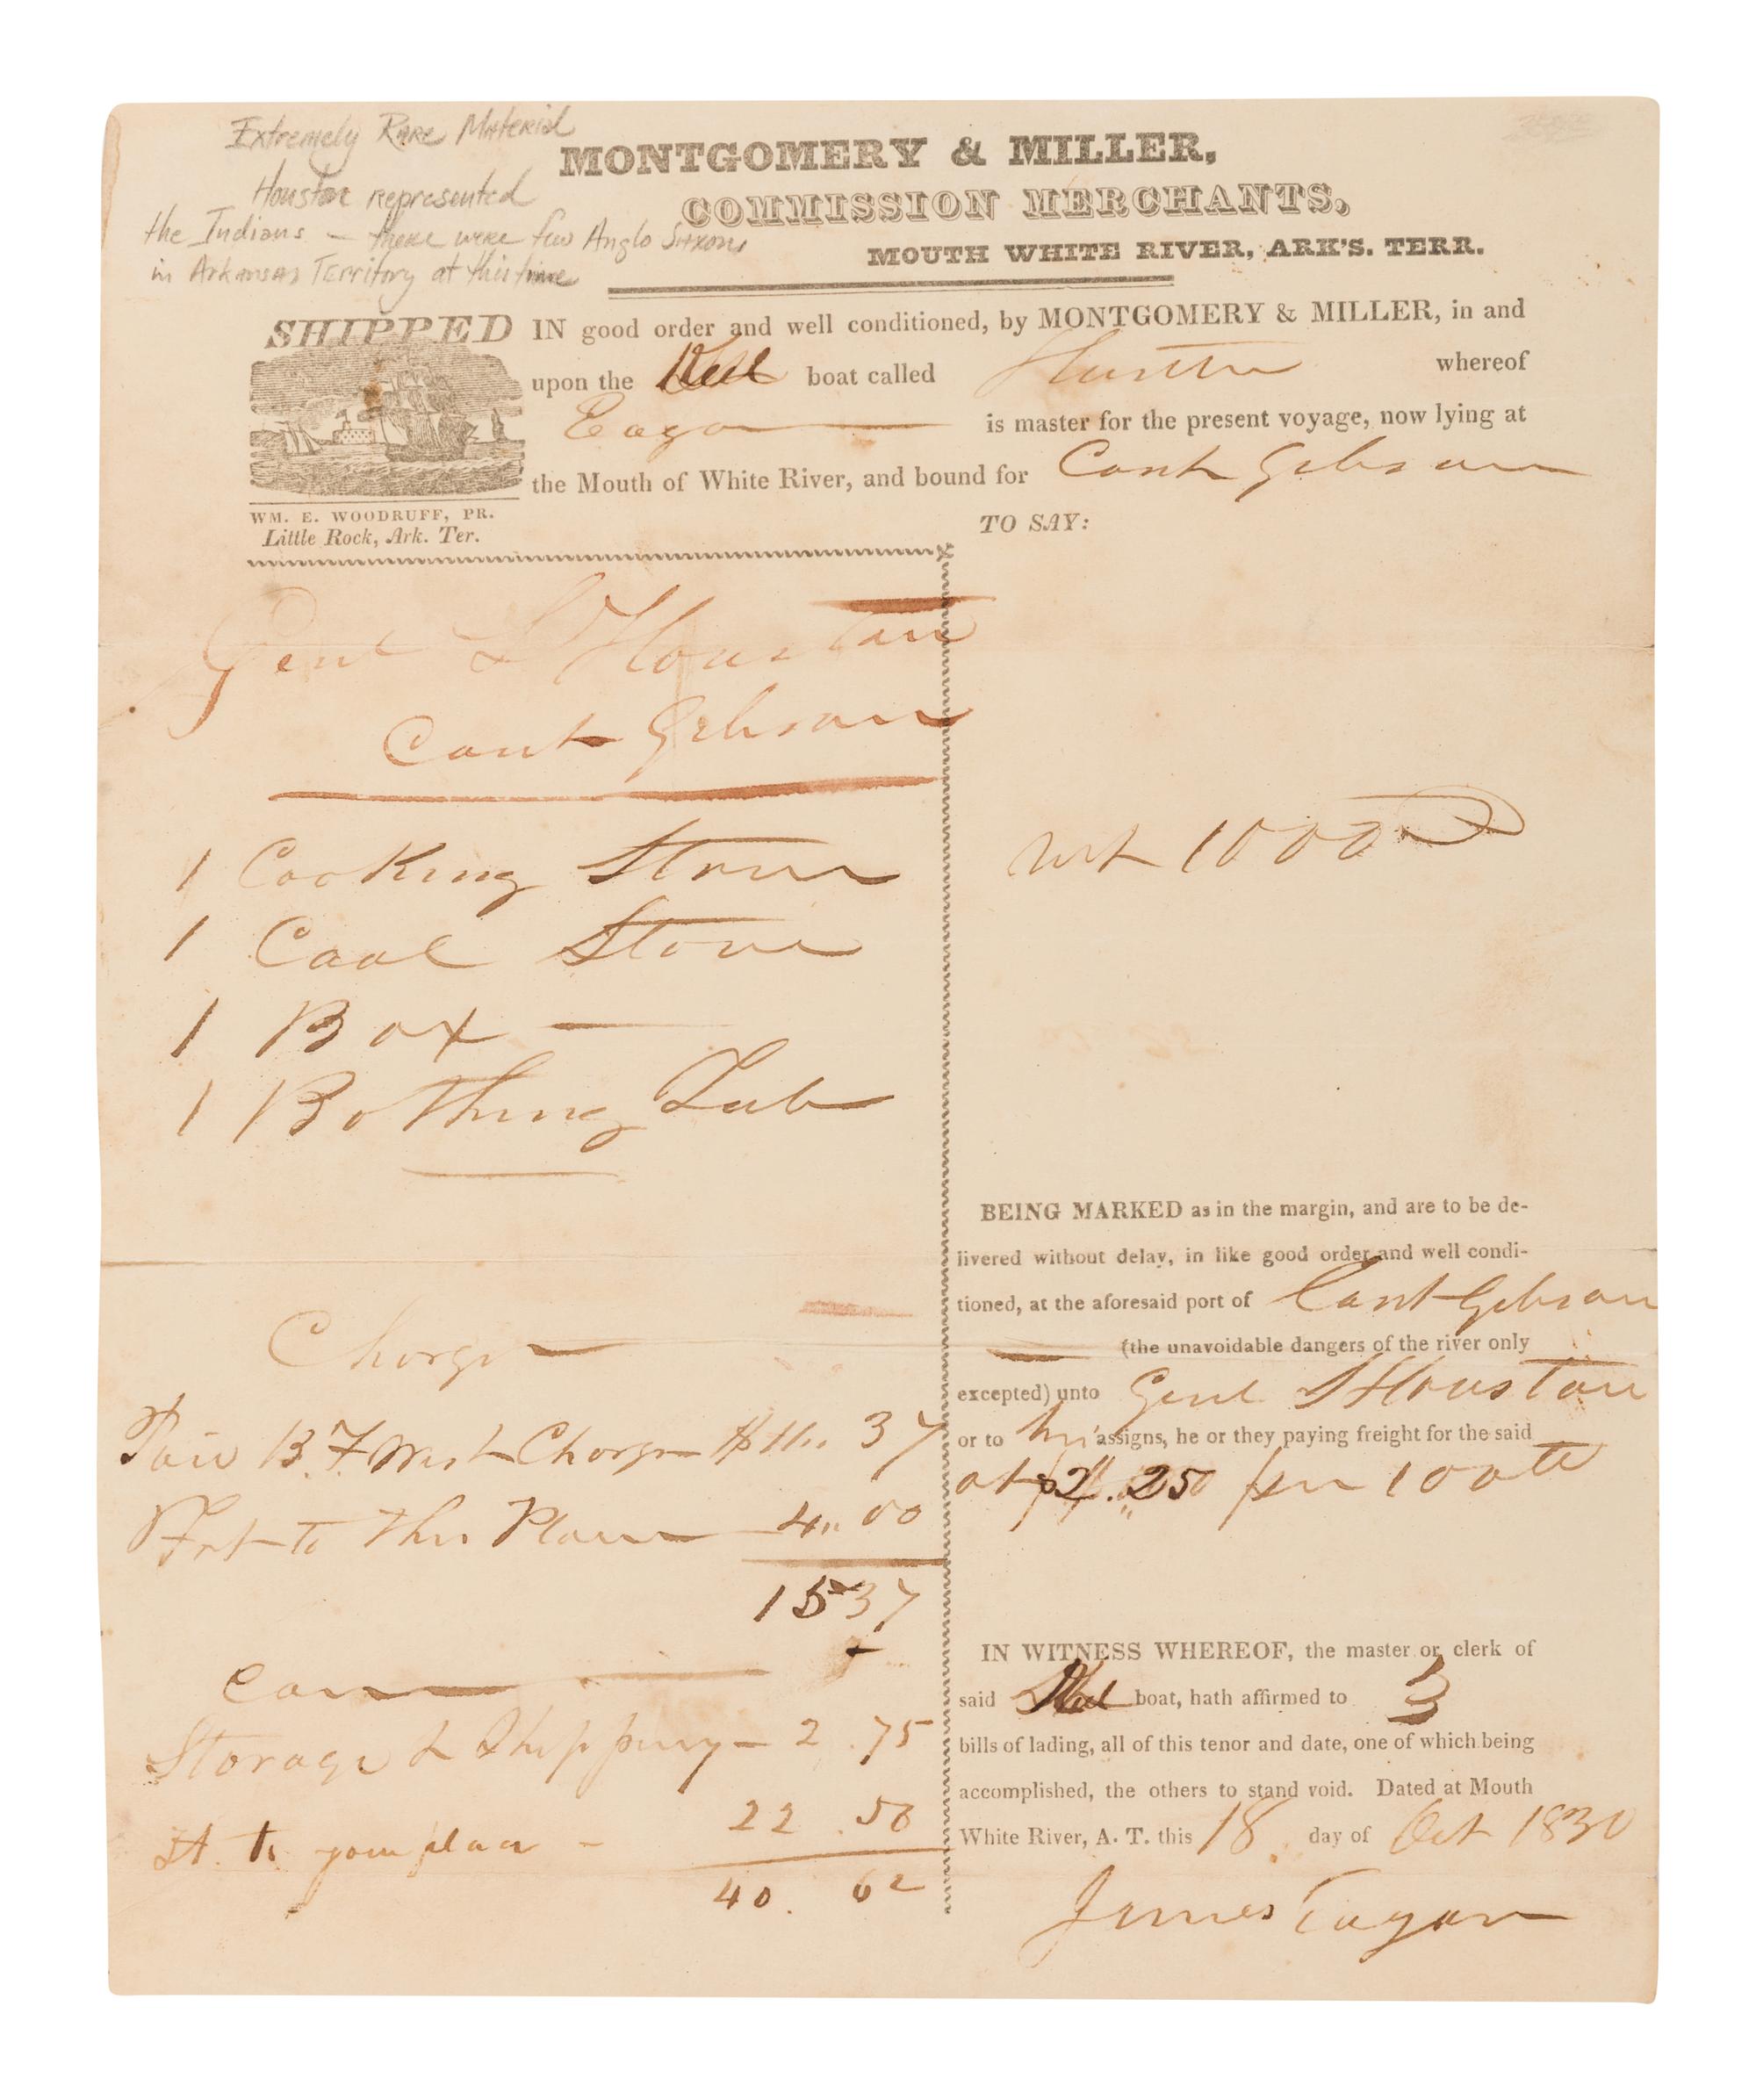 Extremely Rare Material
Houston represented
the Indians – there were few Anglo Saxons
in Arkansas Territory at this time
MONTGOMERY & MILLER,
COMMISSION MERCHANTS,
MOUTH WHITE RIVER, ARK'S. TERR.
SHIPPED IN good order and well conditioned, by MONTGOMERY & MILLER, in and
upon the Keel boat called whereof
Eagan is master for the present voyage, now lying at
the Mouth of White River, and bound for Cant Gibson
WM. E. WOODRUFF, PR.
Little Rock, Ark. Ter.
TO SAY:
Genl S Houston
Cant Gibson
1 Cooking Stove
wt 1000
1 Coal Stove
1 Box
1 Bathing Tub
BEING MARKED as in the margin, and are to be de-
livered without delay, in like good order and well condi-
tioned, at the aforesaid port of Cant Gibson
(the unavoidable dangers of the river only
excepted) unto Genl S Houston
or to his assigns, he or they paying freight for the said
at $2.250 per 100lb
Charges
Paid B.F. West Charges $11.. 37
Frt to This Place 4.. 00
15 37
Storage & Shipping – 2.75
Ft. to your place – 22.50
40.62
IN WITNESS WHEREOF, the master or clerk of
said Keel boat, hath affirmed to 3
bills of lading, all of this tenor and date, one of which being
accomplished, the others to stand void. Dated at Mouth
White River, A. T. this 18 day of Oct 1830
James Eagan